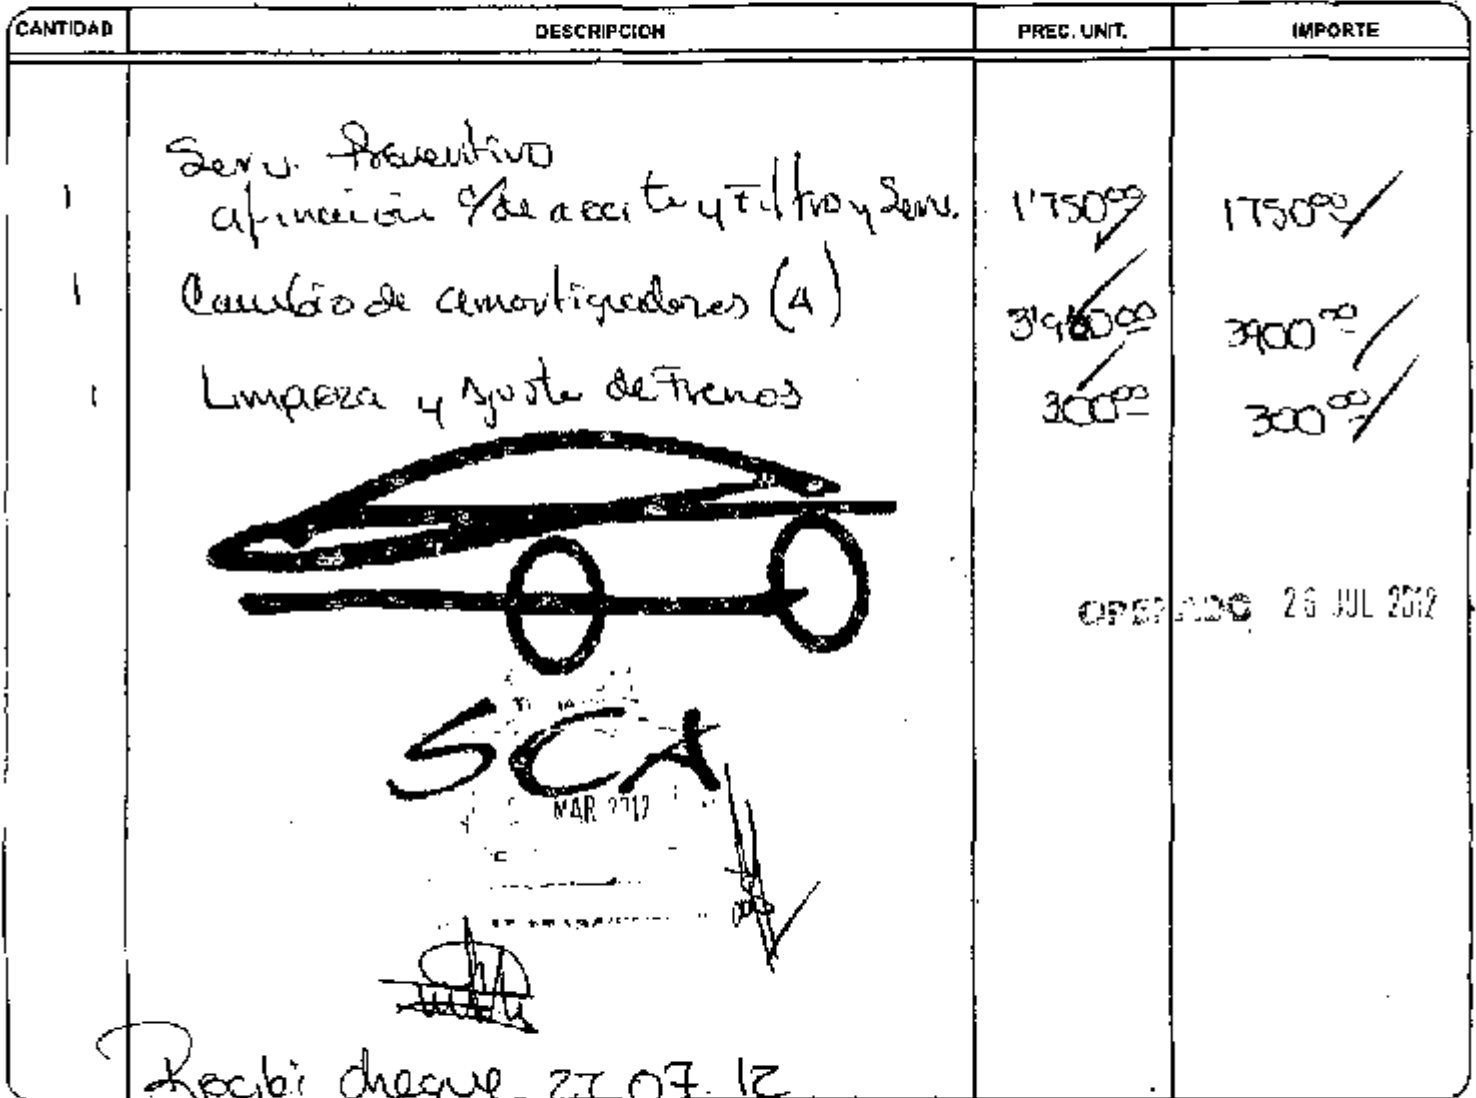 CANTIDAD DESCRIPCION PREC. UNIT. IMPORTE
Serv. Preventivo
1 afinación c/de aceite y Filtro y Serv. 1'750.00 1750.00
1 Cambio de amortiguadores (4) 3'900.00 3900.00
1 Limpieza y ajuste de Frenos 300.00 300.00
OPERADO 26 JUL 2012
SCA
MAR 2012
Recibí cheque 27 07 12